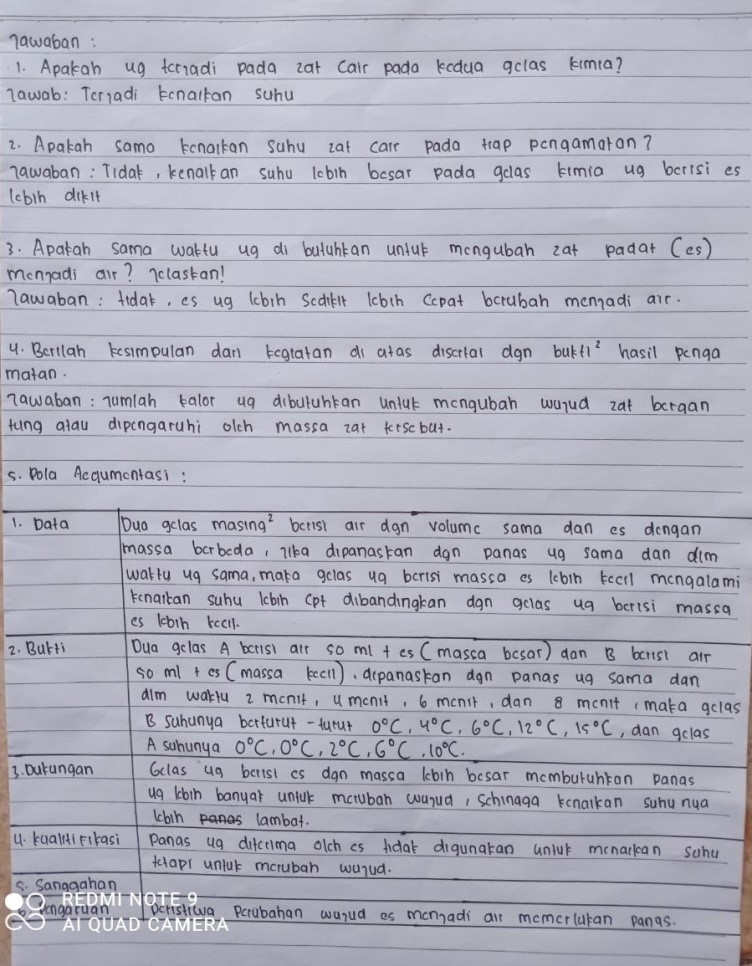 Jawaban :
1. Apakah yg terjadi pada zat Cair pada kedua gelas kimia?
Jawab: Terjadi kenaikan suhu
2. Apakah sama kenaikan suhu zat cair pada tiap pengamatan?
Jawaban : Tidak, kenaikan suhu lebih besar pada gelas kimia yg berisi es
lebih dikit
3. Apakah sama waktu yg di butuhkan untuk mengubah zat padat (es)
menjadi air? Jelaskan!
Jawaban : tidak, es yg lebih sedikit lebih cepat berubah menjadi air.
4. Berilah kesimpulan dari kegiatan di atas disertai dgn bukti² hasil penga
matan.
Jawaban : jumlah kalor yg dibutuhkan untuk mengubah wujud zat bergan
tung atau dipengaruhi oleh massa zat tersebut.
5. Pola Aegumentasi :
1. Data
Dua gelas masing² berisi air dgn volume sama dan es dengan
massa berbeda, jika dipanaskan dgn panas yg sama dan dlm
waktu yg sama, maka gelas yg berisi massa es lebih kecil mengalami
kenaikan suhu lebih cpt dibandingkan dgn gelas yg berisi massa
es lebih kecil.
2. Bukti
Dua gelas A berisi air 50 ml + es (massa besar) dan B berisi air
50 ml + es (massa kecil), dipanaskan dgn panas yg sama dan
dlm waktu 2 menit, 4 menit, 6 menit, dan 8 menit, maka gelas
B suhunya berturut-turut 0°C, 4°C, 6°C, 12°C, 15°C, dan gelas
A suhunya 0°C, 0°C, 2°C, 6°C, 10°C.
3. Dukungan
Gelas yg berisi es dgn massa lebih besar membutuhkan panas
yg lebih banyak untuk merubah wujud, sehingga kenaikan suhu nya
lebih panas lambat.
4. Kualifikasi
Panas yg diterima oleh es tidak digunakan untuk menaikan suhu
tetapi untuk merubah wujud.
5. Sanggahan
Peristiwa perubahan wujud es menjadi air memerlukan panas.
REDMI NOTE 9
AI QUAD CAMERA